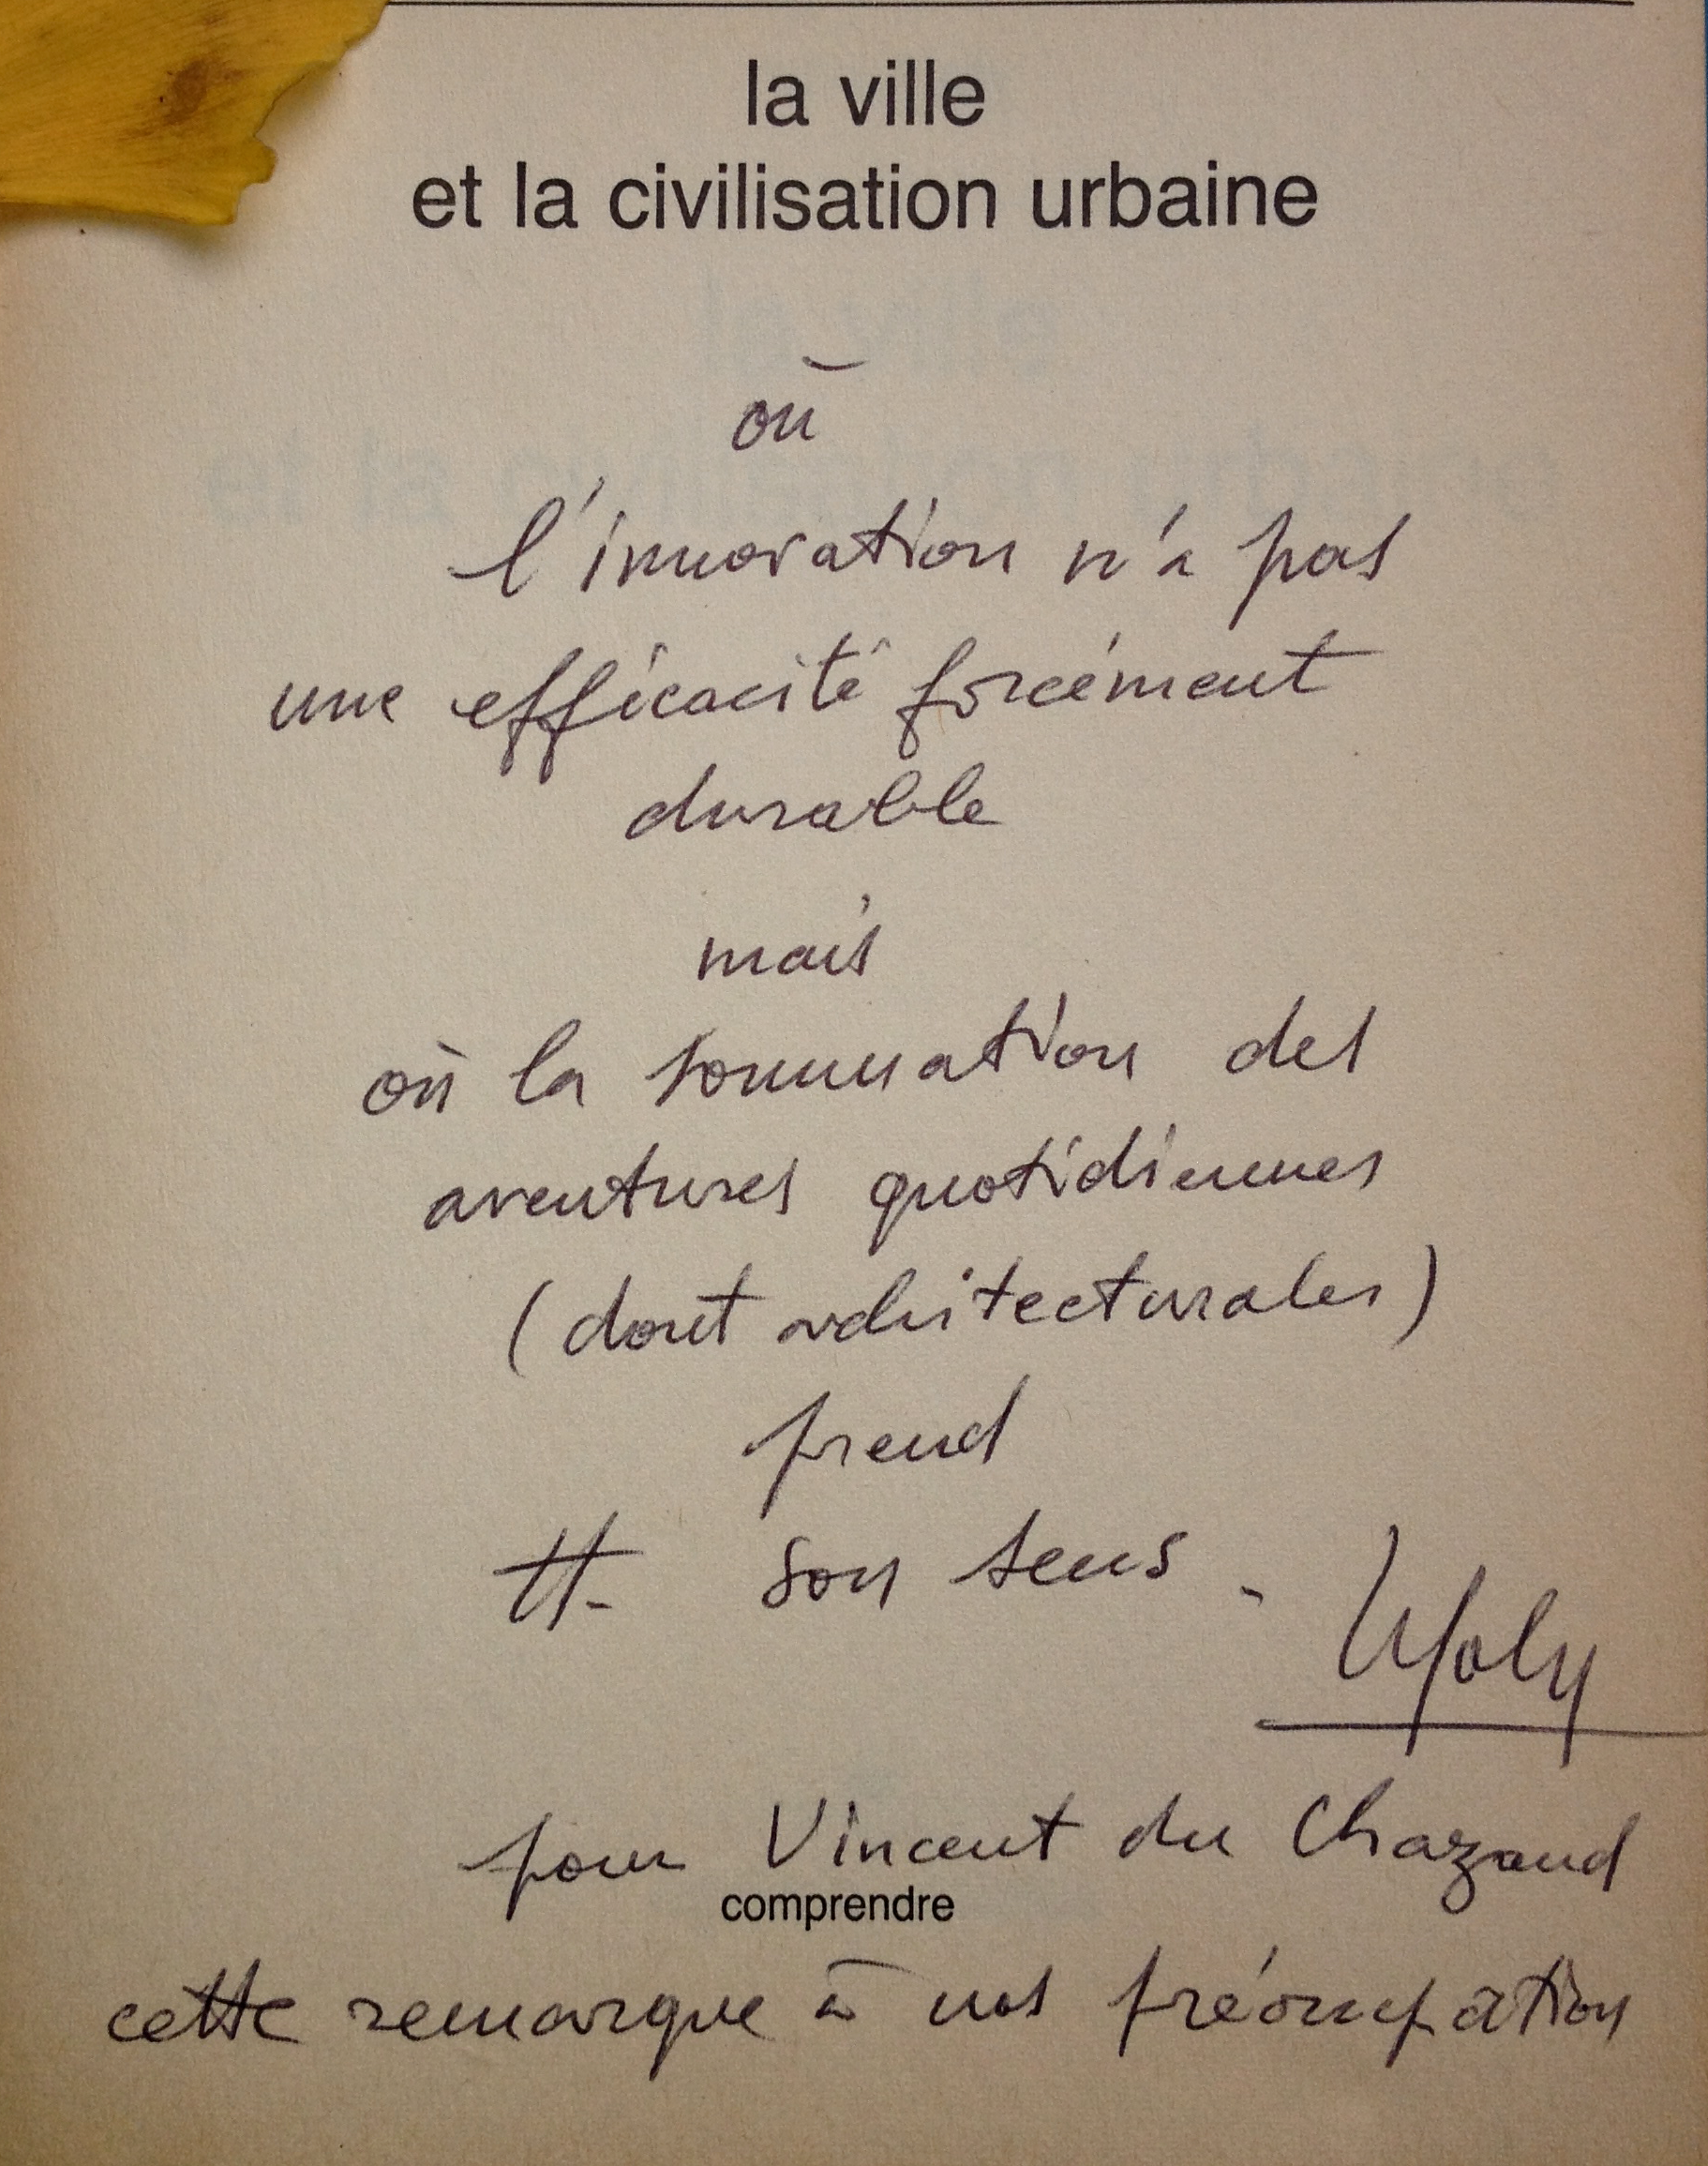 la ville
et la civilisation urbaine
où
l'innovation n'a pas
une efficacité forcément
durable
mais
où la sommation des
aventures quotidiennes
(dont architecturales)
prend
H. son sens.
pour Vincent du Chazaud
comprendre
cette remarque à nos préoccupation